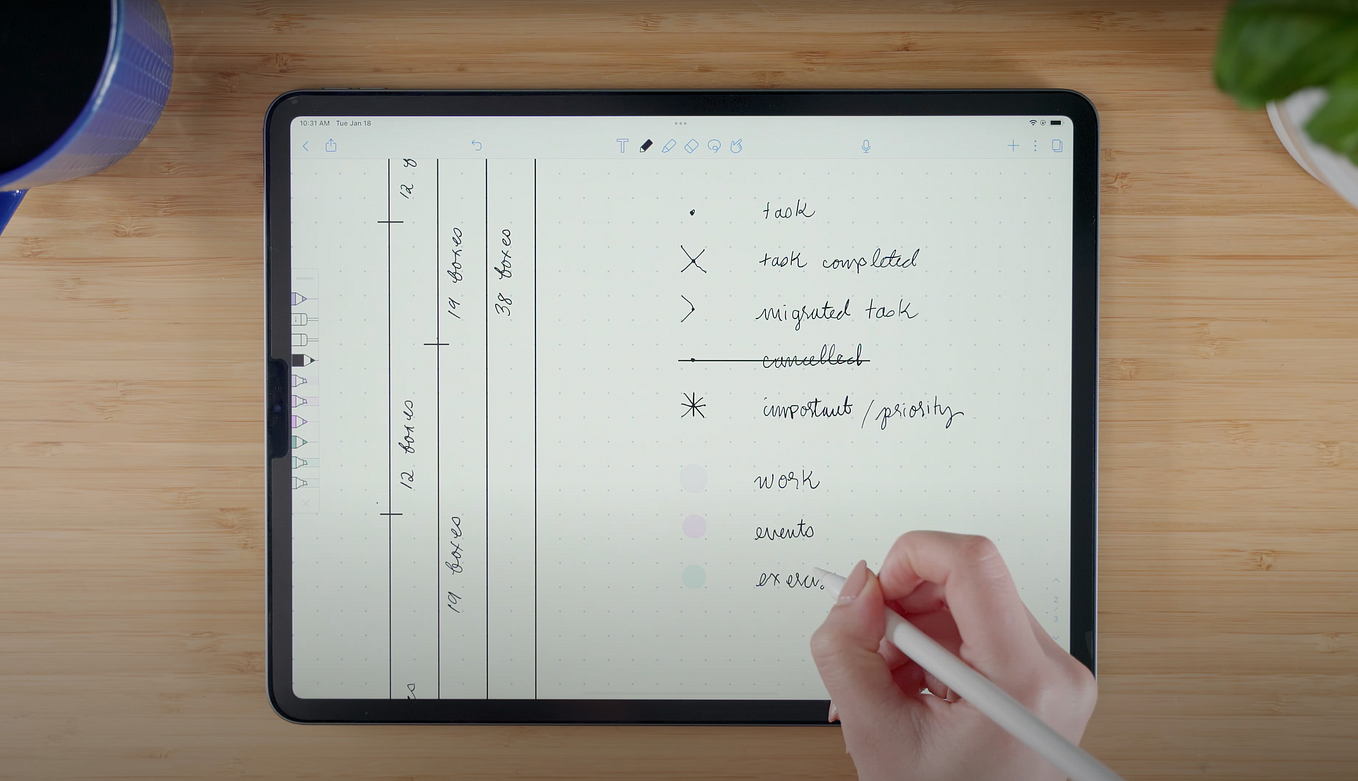 10:31 AM Tue Jan 18
12 8
19 boxes
38 boxes
12 boxes
19 boxes
es
• task
× task completed
> migrated task
• cancelled
* important / priority
work
events
exerci